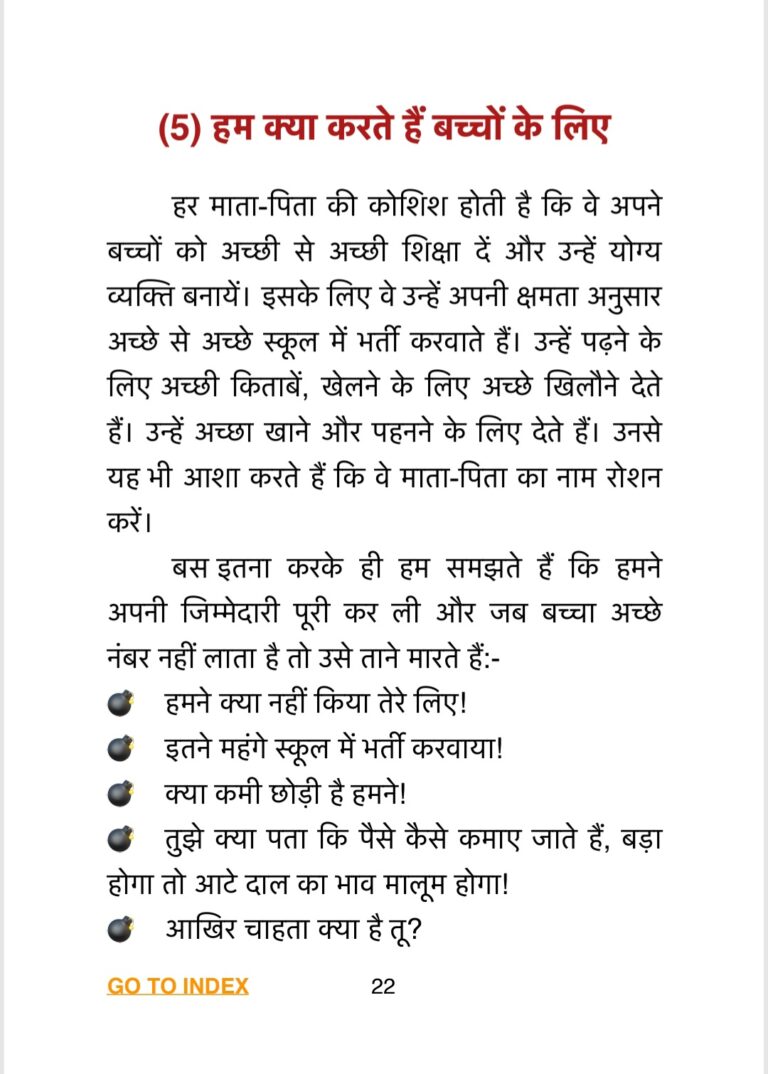 (5) हम क्या करते हैं बच्चों के लिए
हर माता-पिता की कोशिश होती है कि वे अपने
बच्चों को अच्छी से अच्छी शिक्षा दें और उन्हें योग्य
व्यक्ति बनायें। इसके लिए वे उन्हें अपनी क्षमता अनुसार
अच्छे से अच्छे स्कूल में भर्ती करवाते हैं। उन्हें पढ़ने के
लिए अच्छी किताबें, खेलने के लिए अच्छे खिलौने देते
हैं। उन्हें अच्छा खाने और पहनने के लिए देते हैं। उनसे
यह भी आशा करते हैं कि वे माता-पिता का नाम रोशन
करें।
बस इतना करके ही हम समझते हैं कि हमने
अपनी जिम्मेदारी पूरी कर ली और जब बच्चा अच्छे
नंबर नहीं लाता है तो उसे ताने मारते हैं:-
💣 हमने क्या नहीं किया तेरे लिए!
💣 इतने महंगे स्कूल में भर्ती करवाया!
💣 क्या कमी छोड़ी है हमने!
💣 तुझे क्या पता कि पैसे कैसे कमाए जाते हैं, बड़ा
होगा तो आटे दाल का भाव मालूम होगा!
💣 आखिर चाहता क्या है तू?
GO TO INDEX 22